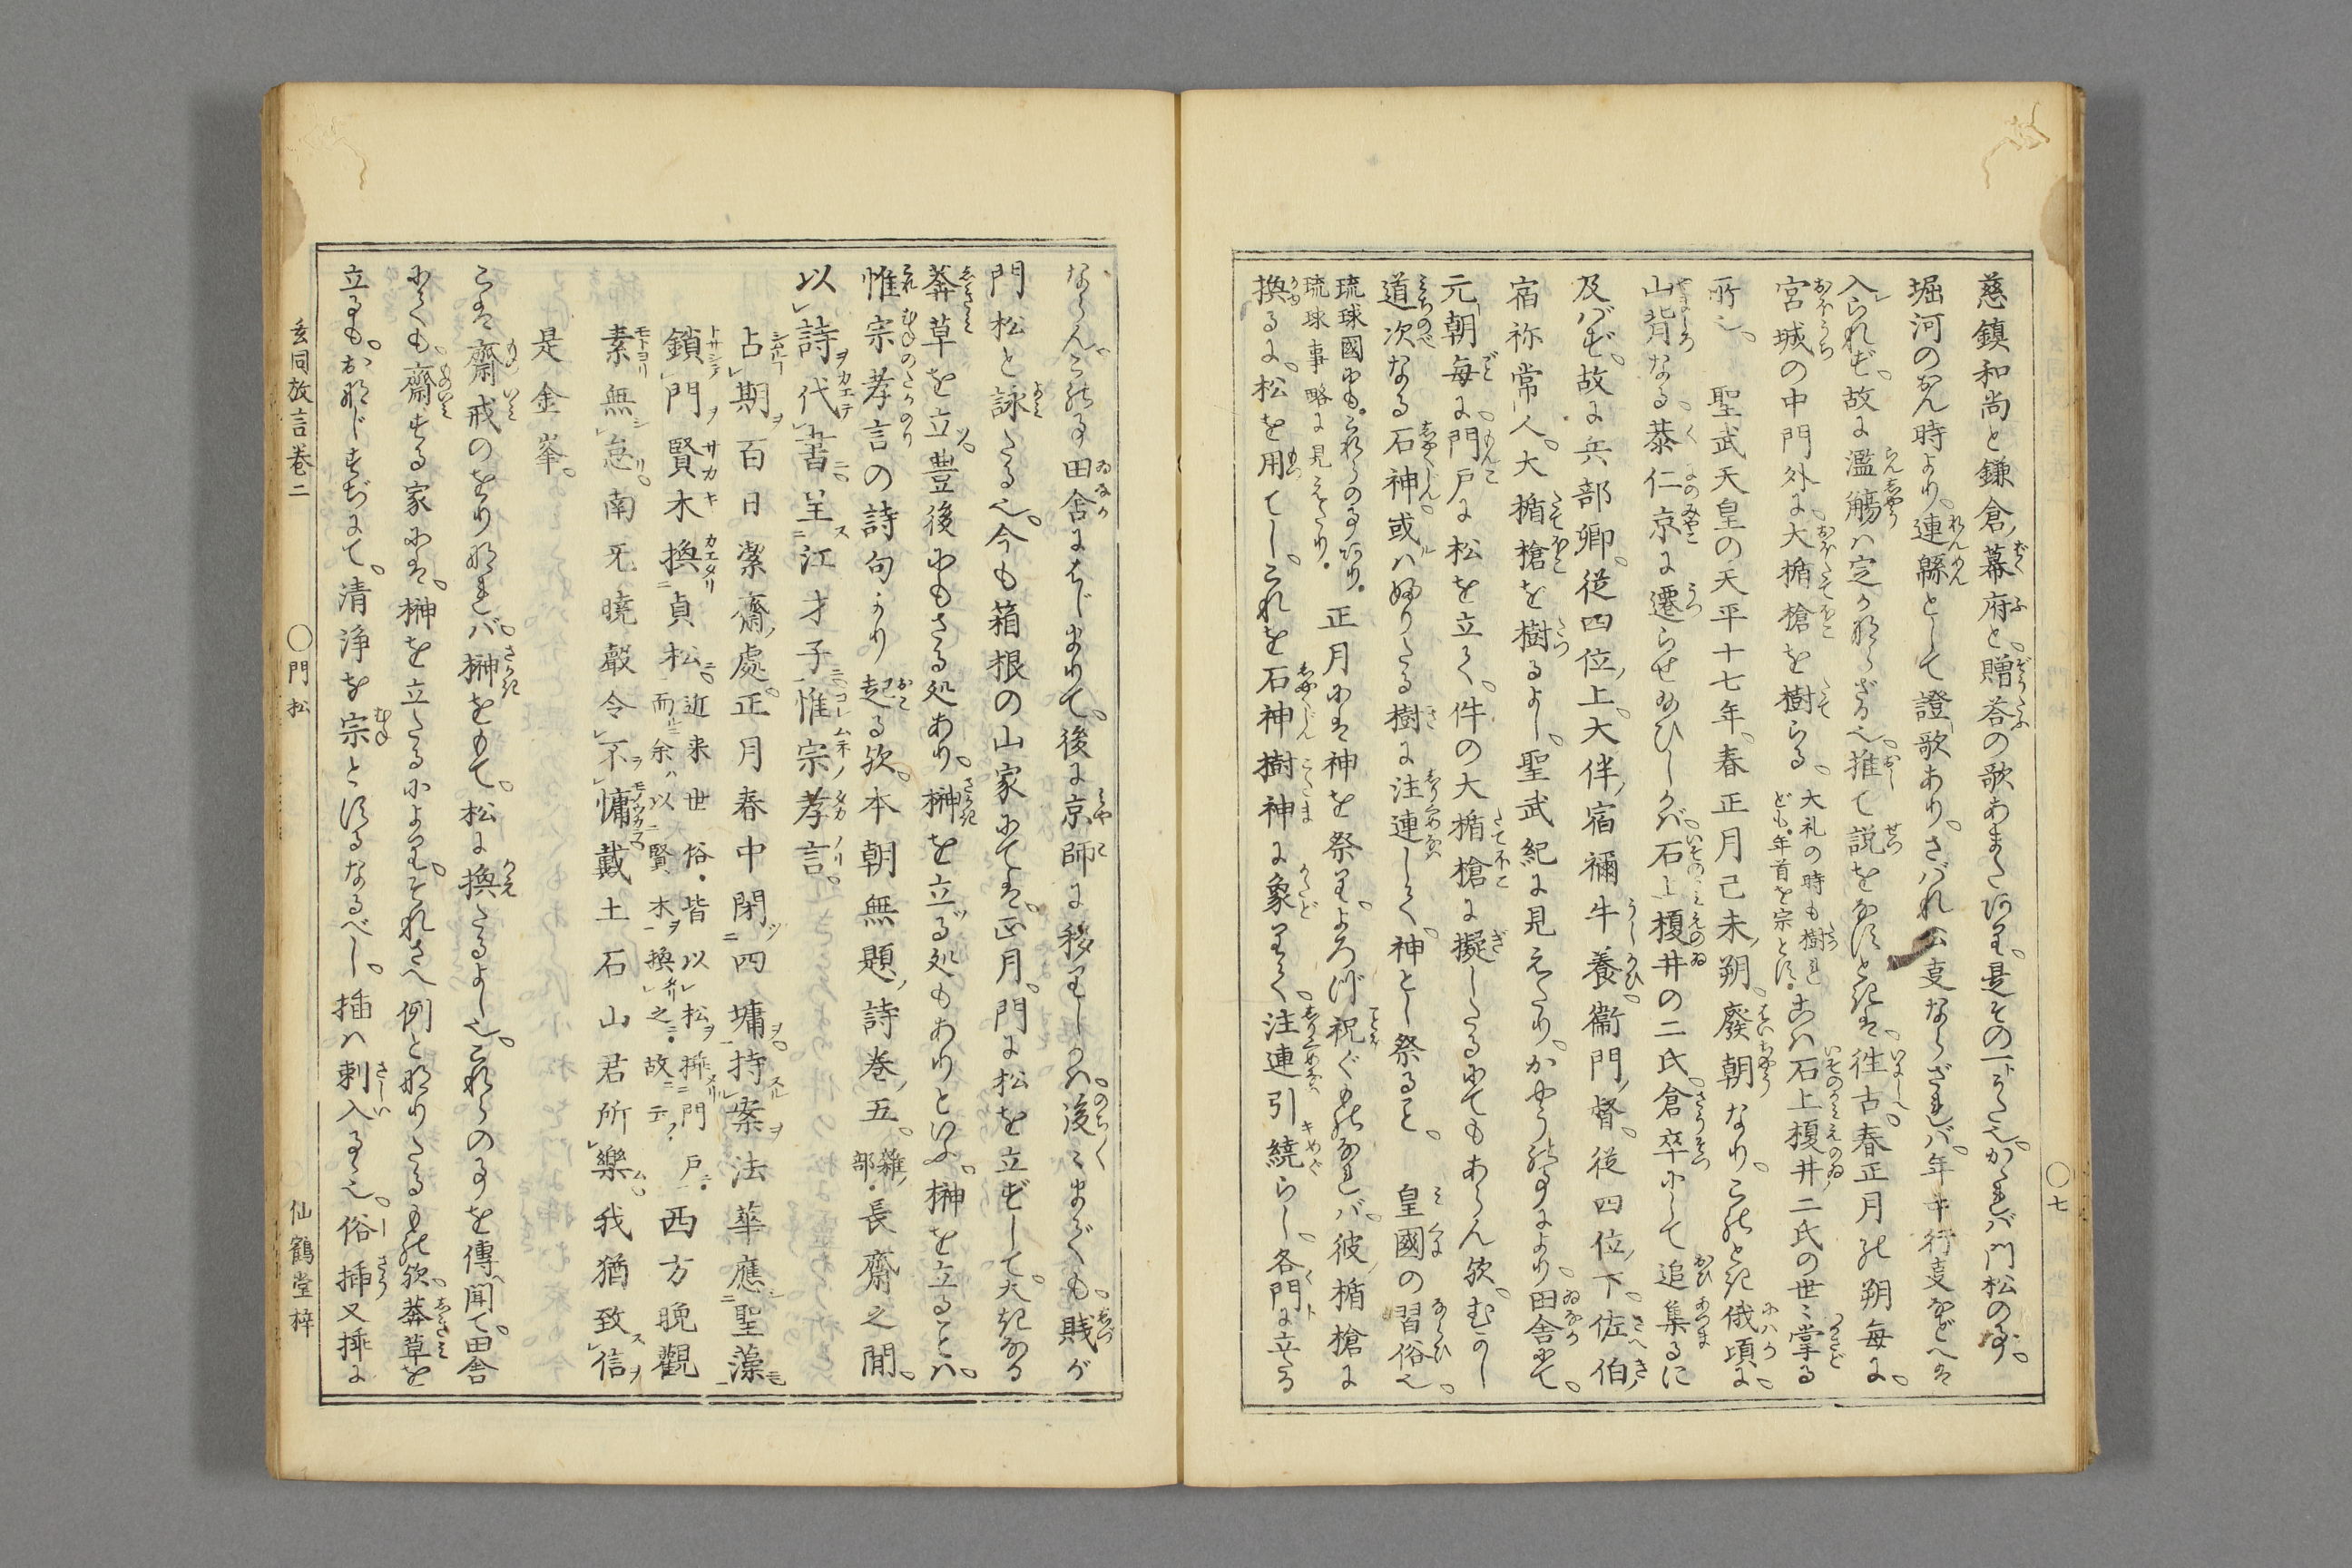 慈鎮和尚と鎌倉幕府と。贈荅の歌あまたあり。是その一ッ也。かゝれバ門松の事。
堀河のおん時より。連緜として證歌あり。さバれ公事ならざれバ。年中行事などへは
入られず。故に濫觴ハ定かならざる也。推て説をなすときは。徃古。春正月の朔毎に。
宮城の中門外に。大楯槍を樹らる。大礼の時も樹れ
ども。年首を宗とす。こハ石上榎井二氏の世〻掌る
所也。聖武天皇の天平十七年。春正月己未朔。廢朝なり。このとき俄項に。
山背なる。恭仁京に遷らせ給ひしかバ。石上榎井の二氏。倉卒にして追集るに
及バず。故に兵部卿。從四位上。大伴宿禰牛養。衞門督。從四位下。佐伯
宿祢常人。大楯槍を樹るよし。聖武紀に見えたり。かやうの事により。田舎にて。
元朝毎に。門戸に松を立て。件の大楯槍に擬したるにてもあらん欤。むかし
道次なる石神。或ハ ふりたる樹に注連して。神とし祭ること。皇國の習俗也。
琉球國にも。これらの事あり。
琉球事略に見えたり。正月には神を祭り。よろづ祝ぐものなれバ。彼楯槍に
換るに。松を用てし。これを石神樹神に象りて。注連引繞らし。各門に立たる
〇七
ならん。この事田舎にはじまりて。後に京師に移りしかバ。後〻までも。賎が
門松と詠たる也。今も箱根の山家にては。正月。門に松を立ずして。大きなる
莽草を立ツ。豊後にもさる処あり。榊を立ヅる処もありといふ。榊を立ることハ。
惟宗孝言の詩句より起る欤。本朝無題詩巻五。雜
部。長齋之間。
以詩代書呈江才子惟宗孝言。
占期百日潔齋處。正月春中閉四墉。持案法華應聖藻
鎖門賢木換貞松。近来世俗。皆以松挿門戸。
而余以賢木換之。故云。西方晩觀
素無怠。南无曉聲令不慵。戴土石山君所樂。我猶致信
是金峯。
こは齋戒のをりなれバ。榊をもて。松に換たるよし也。これらの事を傳聞て。田舎
にても。齋する家には。榊を立たるによりて。それさへ例となりたるもの欤。莽草を
立るも。おなじすぢにて。清浄を宗とするなるべし。插ハ刺入るゝ也。俗挿又揷に
玄同放言巻二　〇門松　仙鶴堂梓